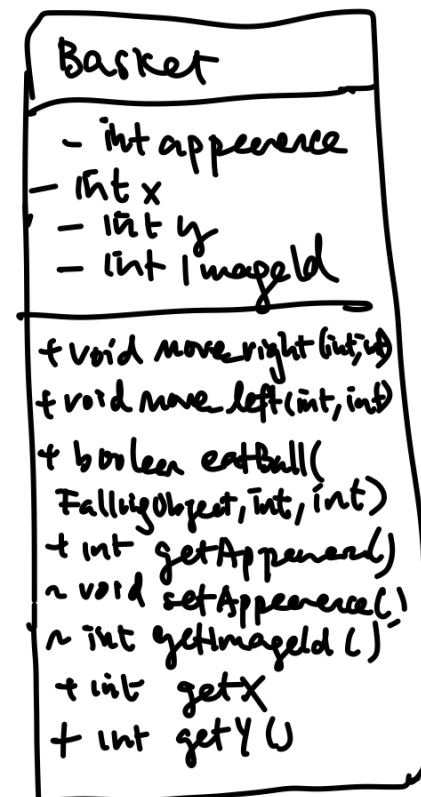 Basket
- int appearence
- int x
- int y
- int ImageId
+ void move_right(int,int)
+ void move_left(int, int)
+ boolean eatBall(
FallingObject, int, int)
+ int getAppearence()
~ void setAppearence()
~ int getImageId()
+ int getX
+ int getY()